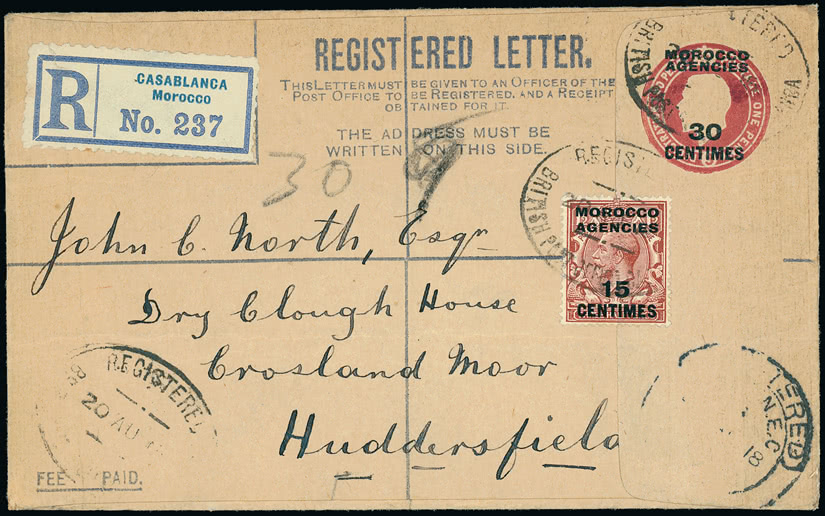 REGISTERED LETTER.
THIS LETTER MUST BE GIVEN TO AN OFFICER OF THE
POST OFFICE TO BE REGISTERED, AND A RECEIPT
OBTAINED FOR IT.
THE ADDRESS MUST BE
WRITTEN ON THIS SIDE.
R
CASABLANCA
Morocco
No. 237
MOROCCO
AGENCIES
30
CENTIMES
30
REGISTE
BRITISH
MOROCCO
AGENCIES
15
CENTIMES
John C. North, Esqr
Dry Clough House
Crosland Moor
Huddersfield
REGISTERED
20 AU
TERED
N.E.C
18
FEE PAID.